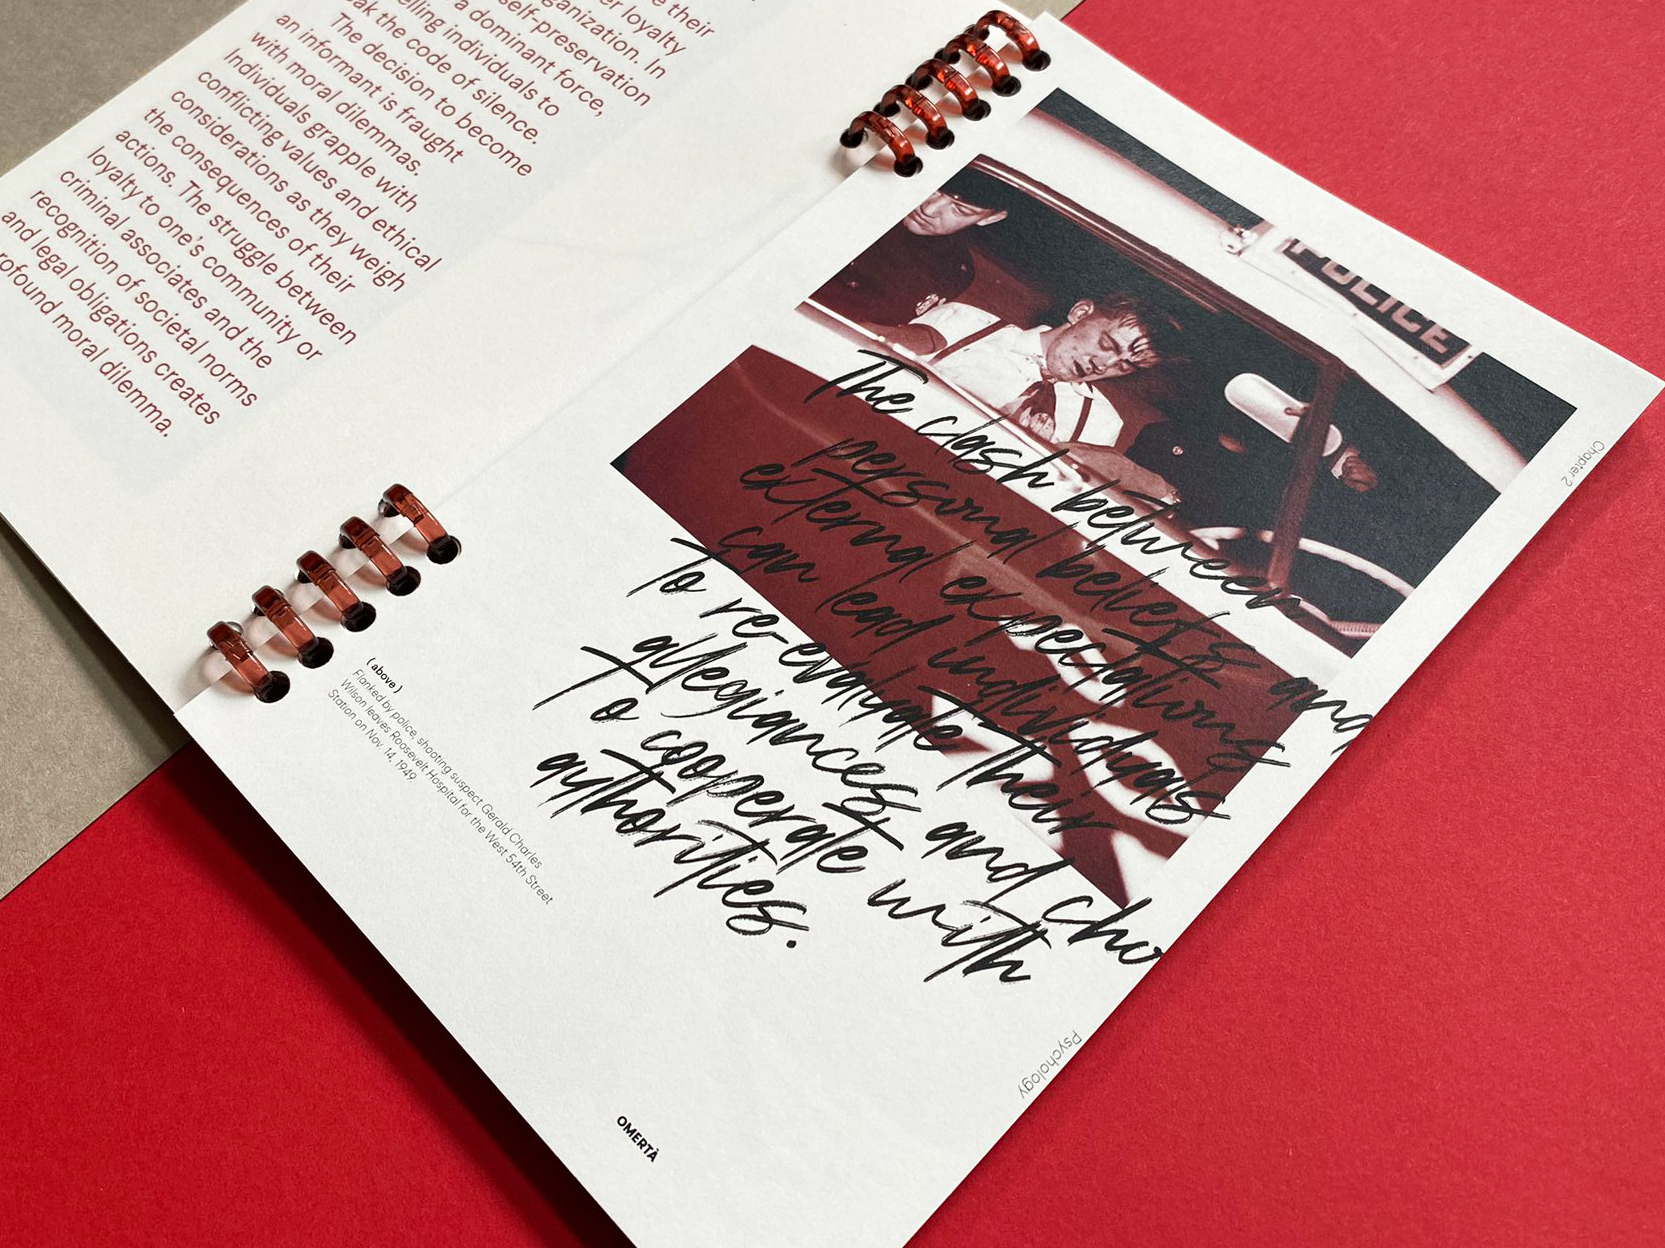 their
loyalty
organization. In
self-preservation
a dominant force,
individuals to
the code of silence.
The decision to become
an informant is fraught
with moral dilemmas.
Individuals grapple with
conflicting values and ethical
considerations as they weigh
the consequences of their
actions. The struggle between
loyalty to one's community or
criminal associates and the
recognition of societal norms
and legal obligations creates
profound moral dilemma.
POLICE
The clash between
personal beliefs and
external expectations
can lead individuals
to re-evaluate their
allegiances and cho
to cooperate with
authorities.
( above )
Flanked by police, shooting suspect Gerald Charles
Wilson leaves Roosevelt Hospital for the West 54th Street
Station on Nov. 14, 1949
Chapter 2
Psychology
OMERTÀ